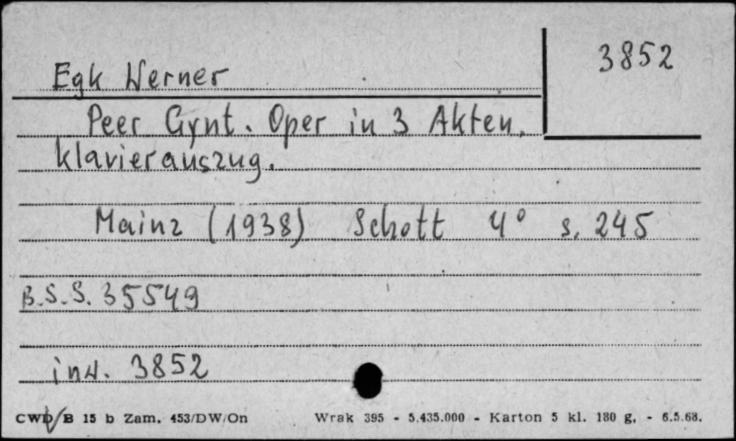 3852
Egk Werner
Peer Gynt. Oper in 3 Akten.
Klavierauszug.
Mainz (1938) Schott 4° s. 245
B.S.S. 35549
inw. 3852
CWD/B 15 b Zam. 453/DW/On Wrak 395 - 5.435.000 - Karton 5 kl. 180 g. - 6.5.68.